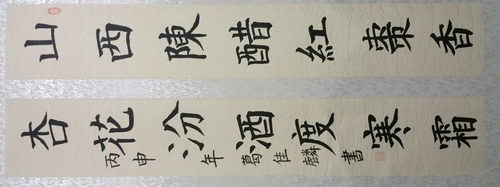 山西陳醋紅棗香
杏花汾酒度寒霜
丙申年葛佳麟書